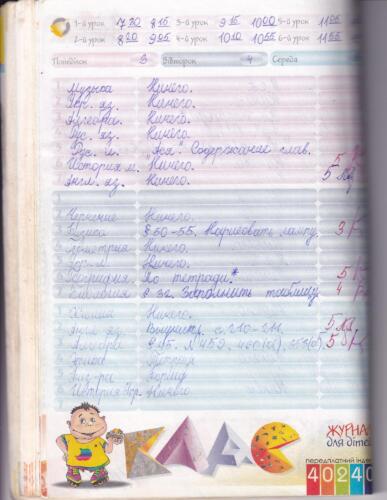 1-й урок 7³⁰ 8¹⁵ 3-й урок 9¹⁵ 10⁰⁰ 5-й урок 11⁰⁵
2-й урок 8²⁰ 9⁰⁵ 4-й урок 10¹⁰ 10⁵⁵ 6-й урок 11⁵⁵
Понеділок 3 Вівторок 4 Середа
Музыка Ничего.
Укр. яз. Ничего.
Алгебра. Ничего.
Рус. яз. Ничего
Рус. л. "Ася" Содержание глав.
История м. Ничего. 5
Англ. яз. Ничего. 5
Черчение Ничего.
Физика § 50-55. Нарисовать лампу. 3
Геометрия Ничего.
Ничего.
География. По тетради.* 5
§ 32. Заполнить таблицу 4
Химия Ничего.
Англ яз. с. 210-211. 5
Алгебра § 15. N 459, 460 5
Физ-ра Форма
История Укр. Ничего
КЛАС
ЖУРНАЛ
для дітей
передплатний індекс
4024